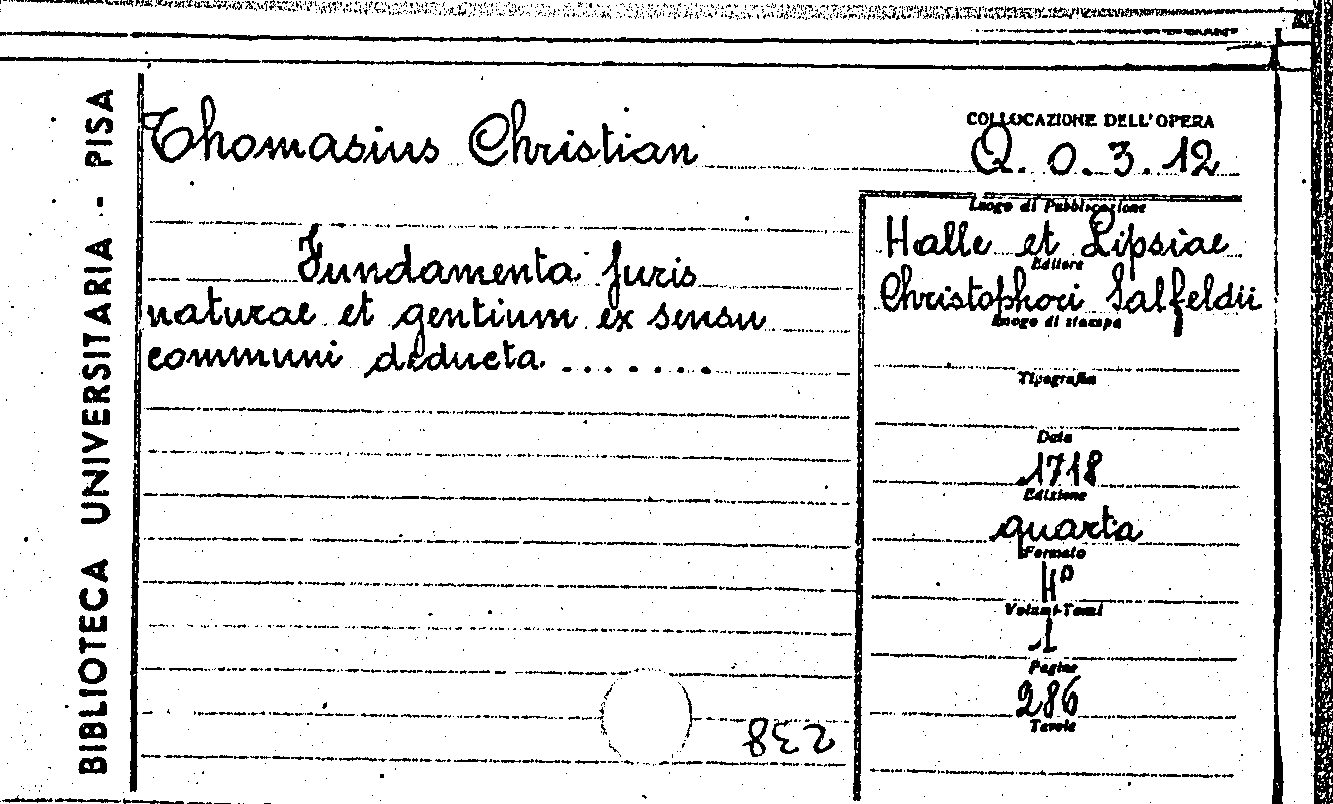 BIBLIOTECA UNIVERSITARIA - PISA
Thomasius Christian
COLLOCAZIONE DELL'OPERA
Q. 0. 3. 12
Fundamenta juris
naturae et gentium ex sensu
communi deducta .......
Luogo di Pubblicazione
Halle et Lipsiae
Editore
Christophori Salfeldii
Luogo di stampa
Tipografia
Data
1718
Edizione
quarta
Formato
4°
Volumi-Tomi
1
Pagine
286
Tavole
238